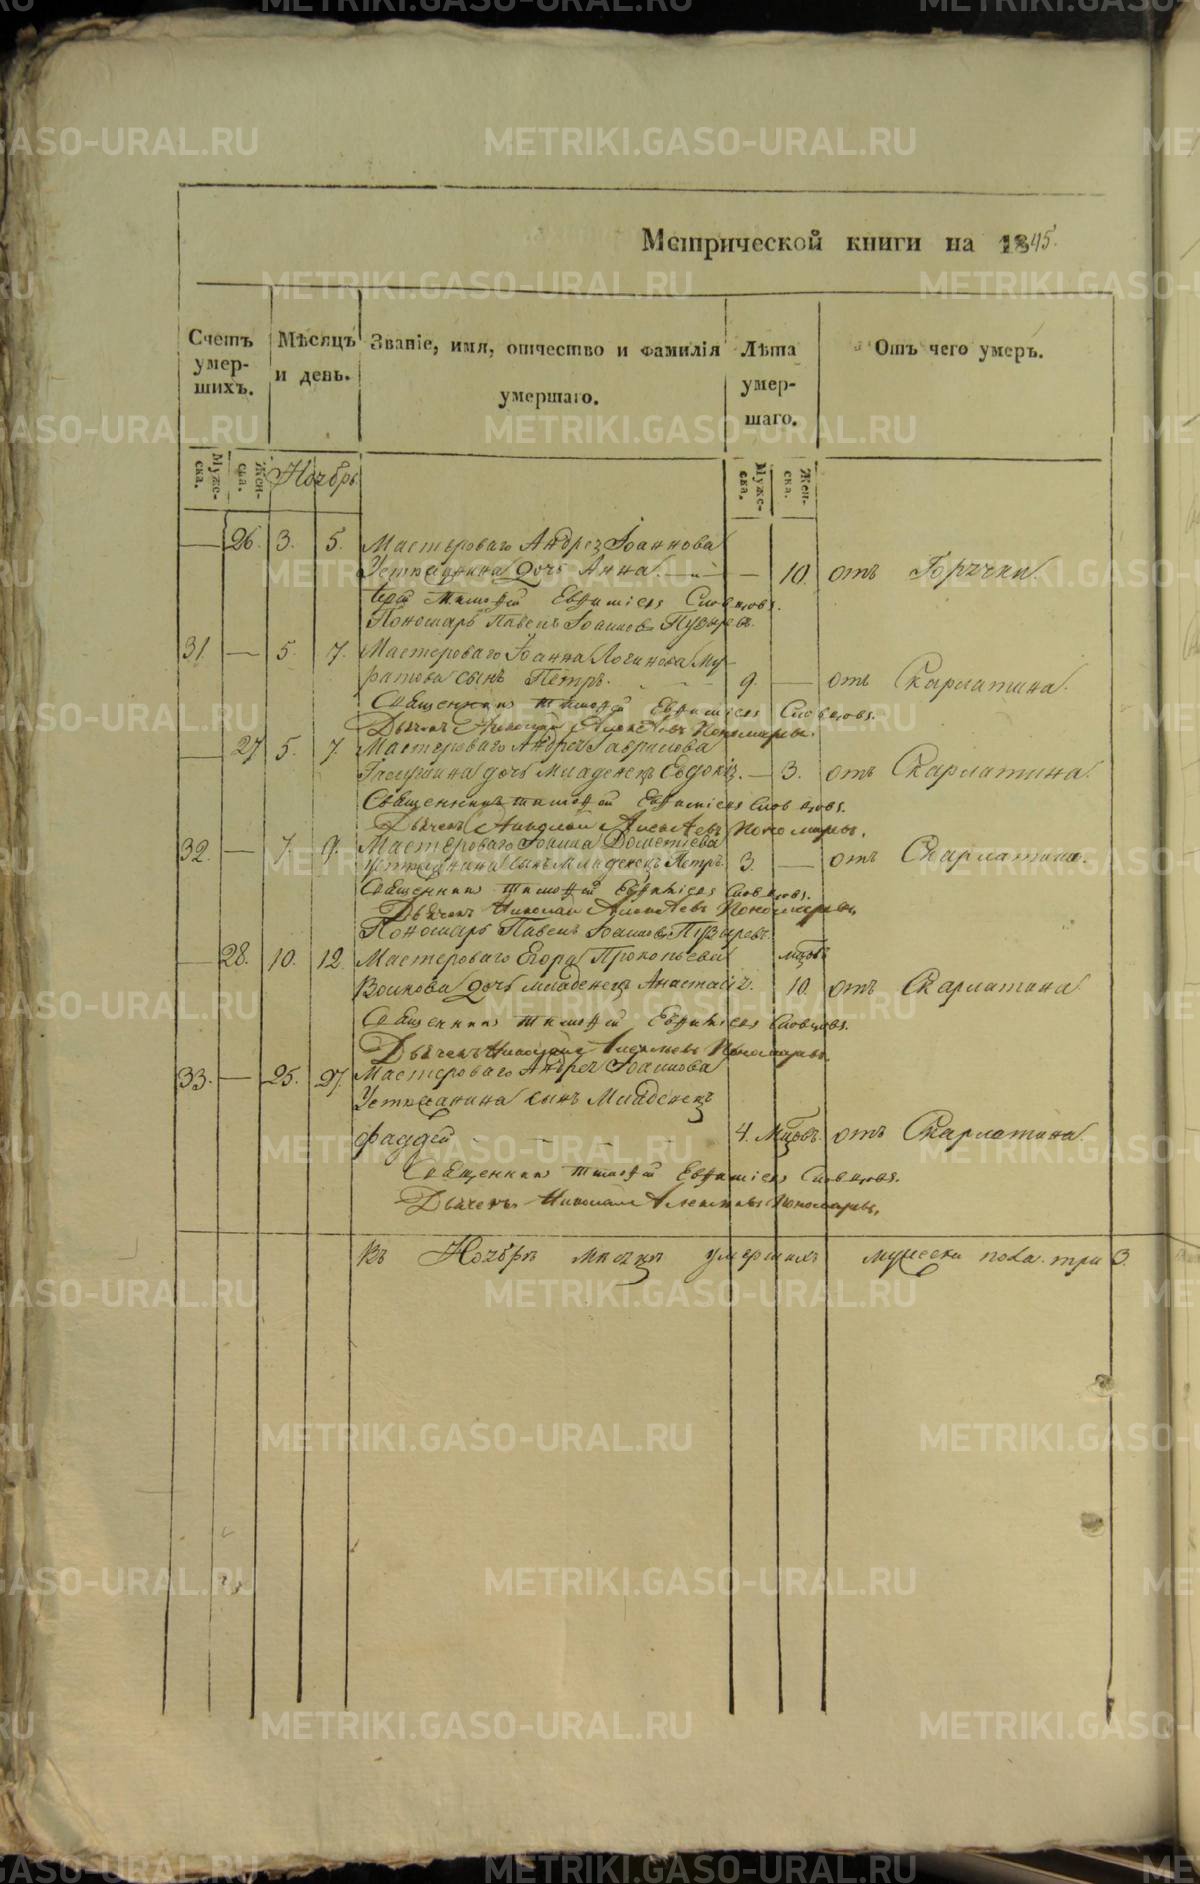 Метрической книги на 1845.
Счетъ умершихъ.
Мѣсяцъ и день.
Званіе, имя, отчество и фамилія умершаго.
Лѣта умершаго.
Отъ чего умеръ.
Мужеска.
Женска.
Ноябрь
Мужеска.
Женска.
— 26. 3. 5. Мастероваго Андрея Іоаннова
дочь Анна. — — 10. отъ Горячки.
Іерей Тимофей Евфиміевъ Словцовъ.
Пономарь Павелъ Іоанновъ Пузыревъ.
31. — 5. 7. Мастероваго Іоанна Логинова Му-
ратова сынъ Петръ. 9. — отъ Скарлатина.
Священникъ Тимофей Евфиміевъ Словцовъ.
Дьячекъ Николай Алексѣевъ Пономаревъ.
— 27 5. 7. Мастероваго Андрея Гаврилова
дочь младенецъ Евдокія. — 3. отъ Скарлатина.
Священникъ Тимофей Евфиміевъ Словцовъ.
Дьячекъ Николай Алексѣевъ Пономаревъ.
32. — 7. 9. Мастероваго Іоанна Дометіева
сынъ Младенецъ Петръ. 3. — отъ Скарлатина.
Священникъ Тимофей Евфиміевъ Словцовъ.
Дьячекъ Николай Алексѣевъ Пономаревъ.
Пономарь Павелъ Іоанновъ Пузыревъ.
— 28. 10. 12. Мастероваго Егора Прокопьева мцовъ
Волкова дочь младенецъ Анастасія. 10. отъ Скарлатина
Священникъ Тимофей Евфиміевъ Словцовъ.
Дьячекъ Николай Алексѣевъ Пономаревъ.
33. — 25. 27. Мастероваго Андрея Іоаннова
сынъ Младенецъ
Фаддей — — — 4. Мцовъ. отъ Скарлатина.
Священникъ Тимофей Евфиміевъ Словцовъ.
Дьячекъ Николай Алексѣевъ Пономаревъ.
Въ Ноябрѣ мѣсяцѣ умершихъ мужеска пола три 3.
METRIKI.GASO-URAL.RU